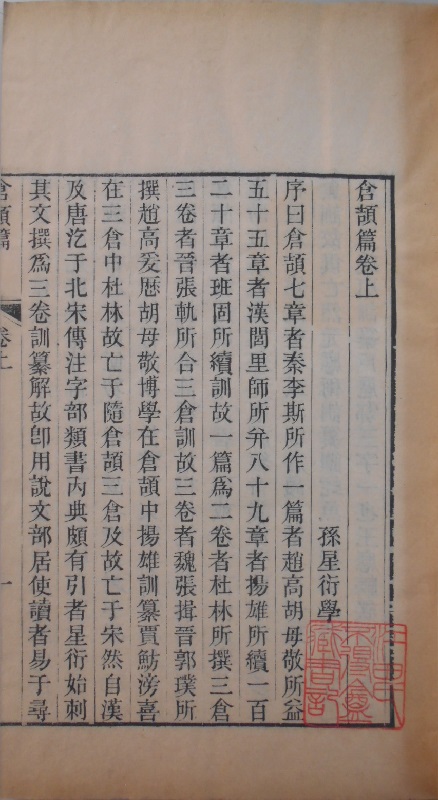 倉頡篇卷上
孫星衍學
序曰倉頡七章者秦李斯所作一篇者趙高胡毋敬所益
五十五章者漢閭里師所幷八十九章者揚雄所續一百
二十章者班固所續訓故一篇爲二卷者杜林所撰三倉
三卷者晉張軌所合三倉訓故三卷者魏張揖晉郭璞所
撰趙高爰歷胡毋敬博學在倉頡中揚雄訓纂賈魴滂喜
在三倉中杜林故亡于隨倉頡三倉及故亡于宋然自漢
及唐汔于北宋傳注字部類書內典頗有引者星衍始刺
其文撰爲三卷訓纂解故卽用說文部居使讀者易于尋
倉頡篇
卷上
一